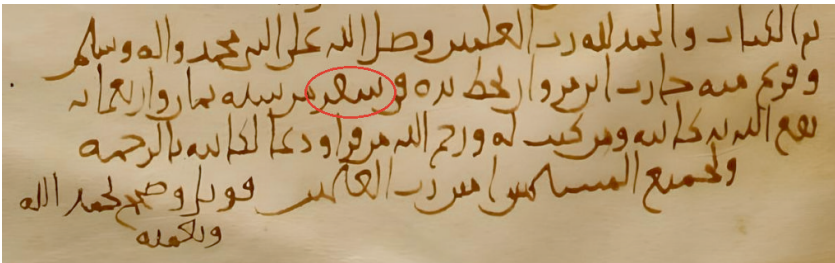 تم الكتاب والحمد لله رب العلمين وصلى الله على النبي محمد واله وسلم
وفرغ منه حارث ابن مروان بخط يده في شعبن من سنه ثمان واربعمائه
نفع الله به كاتبه ومن كتب له ورحم الله من قرا ودعا لكاتبه بالرحمه
ولجميع المسلمين امين رب العلمين قوبل وصحح بحمد الله
ونعمته